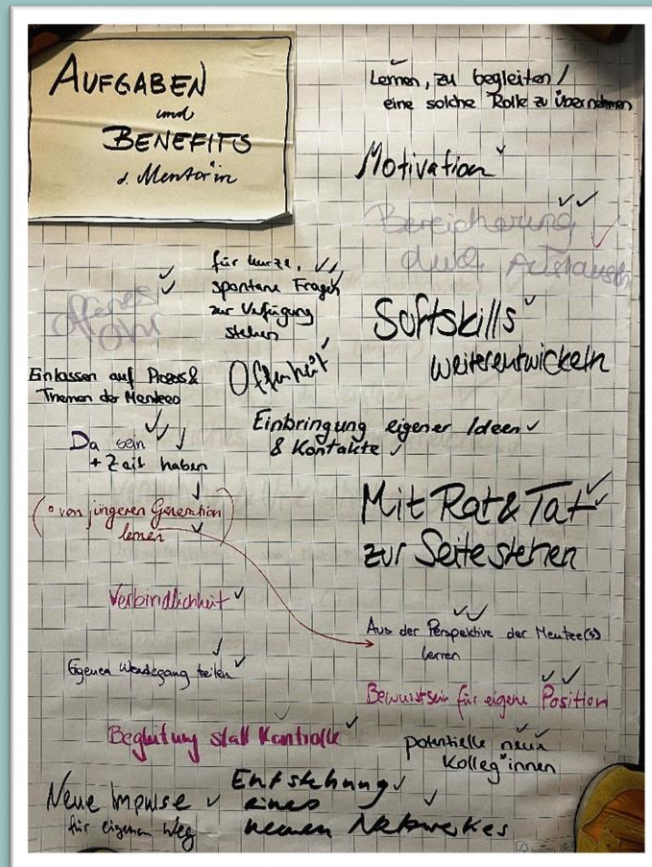 AUFGABEN
und
BENEFITS
d. Mentor*in
Lernen, zu begleiten/
eine solche Rolle zu übernehmen
Motivation
Bereicherung
durch Austausch
Offenes
Ohr
für kurze,
spontane Fragen
zur Verfügung
stehen
Softskills
weiterentwickeln
Einlassen auf Prozess &
Themen der Mentees
Offenheit
Einbringung eigener Ideen
& Kontakte
Da sein
+ Zeit haben
Mit Rat & Tat
zur Seite stehen
(* von jüngeren Generation
lernen)
Verbindlichkeit
Aus der Perspektive der Mentee(s)
lernen
Eigenen Werdegang teilen
Bewusstsein für eigene Position
Begleitung statt Kontrolle
potentielle neue
Kolleg*innen
Neue Impulse
für eigenen Weg
Entstehung
eines
neuen Netzwerkes